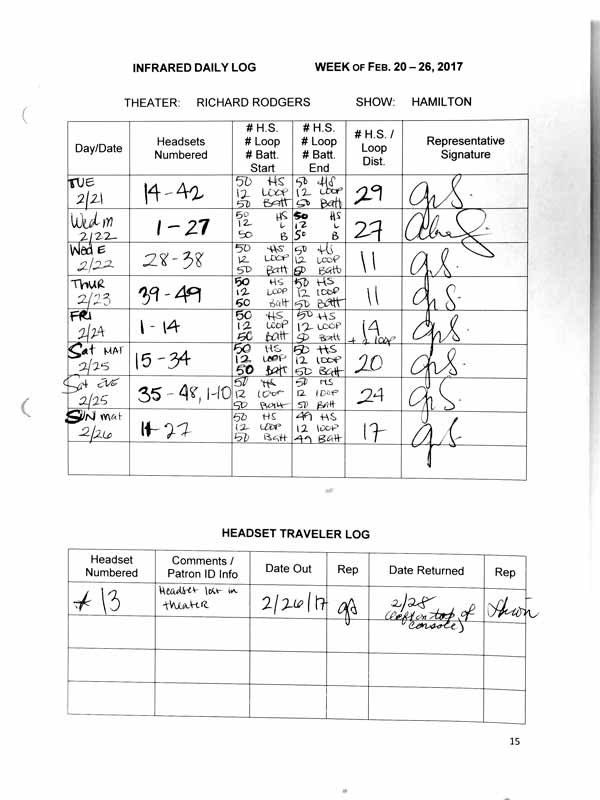 INFRARED DAILY LOG WEEK OF FEB. 20 – 26, 2017
THEATER: RICHARD RODGERS SHOW: HAMILTON
Day/Date Headsets Numbered # H.S. # Loop # Batt. Start # H.S. # Loop # Batt. End # H.S. / Loop Dist. Representative Signature
TUE 2/21 14-42 50 HS 12 LOOP 50 Batt 50 HS 12 LOOP 50 Batt 29 gs.
Wed m 2/22 1-27 50 HS 12 L 50 B 50 HS 12 L B 50 27
Wed E 2/22 28-38 50 HS 12 LOOP 50 Batt 50 HS 12 LOOP 50 Batt 11 gs.
THUR 2/23 39-49 50 HS 12 LOOP 50 Batt 50 HS 12 LOOP 50 Batt 11 gs.
FRI 2/24 1-14 50 HS 12 LOOP 50 Batt 50 HS 12 LOOP 50 Batt 14 + 2 loop gs.
Sat MAT 2/25 15-34 50 HS 12 LOOP 50 Batt 50 HS 12 LOOP 50 Batt 20 gs.
Sat EVE 2/25 35-48, 1-10 50 HS 12 LOOP 50 Batt 50 HS 12 LOOP 50 Batt 24 gs.
SUN mat 2/26 11-27 50 HS 12 LOOP 50 Batt 49 HS 12 LOOP 49 Batt 17 gs.
HEADSET TRAVELER LOG
Headset Numbered Comments / Patron ID Info Date Out Rep Date Returned Rep
# 13 Headset lost in theater 2/26/17 gs 2/28 (left on top of console)
15